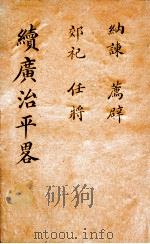 納諫 薦辟
郊祀 任將
續廣治平畧
mtoou.info